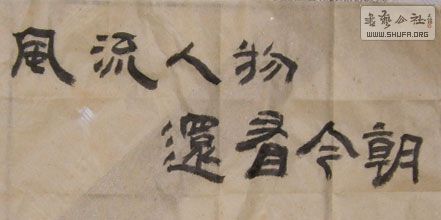 風流人物
還看今朝
WWW.SHUFA.ORG